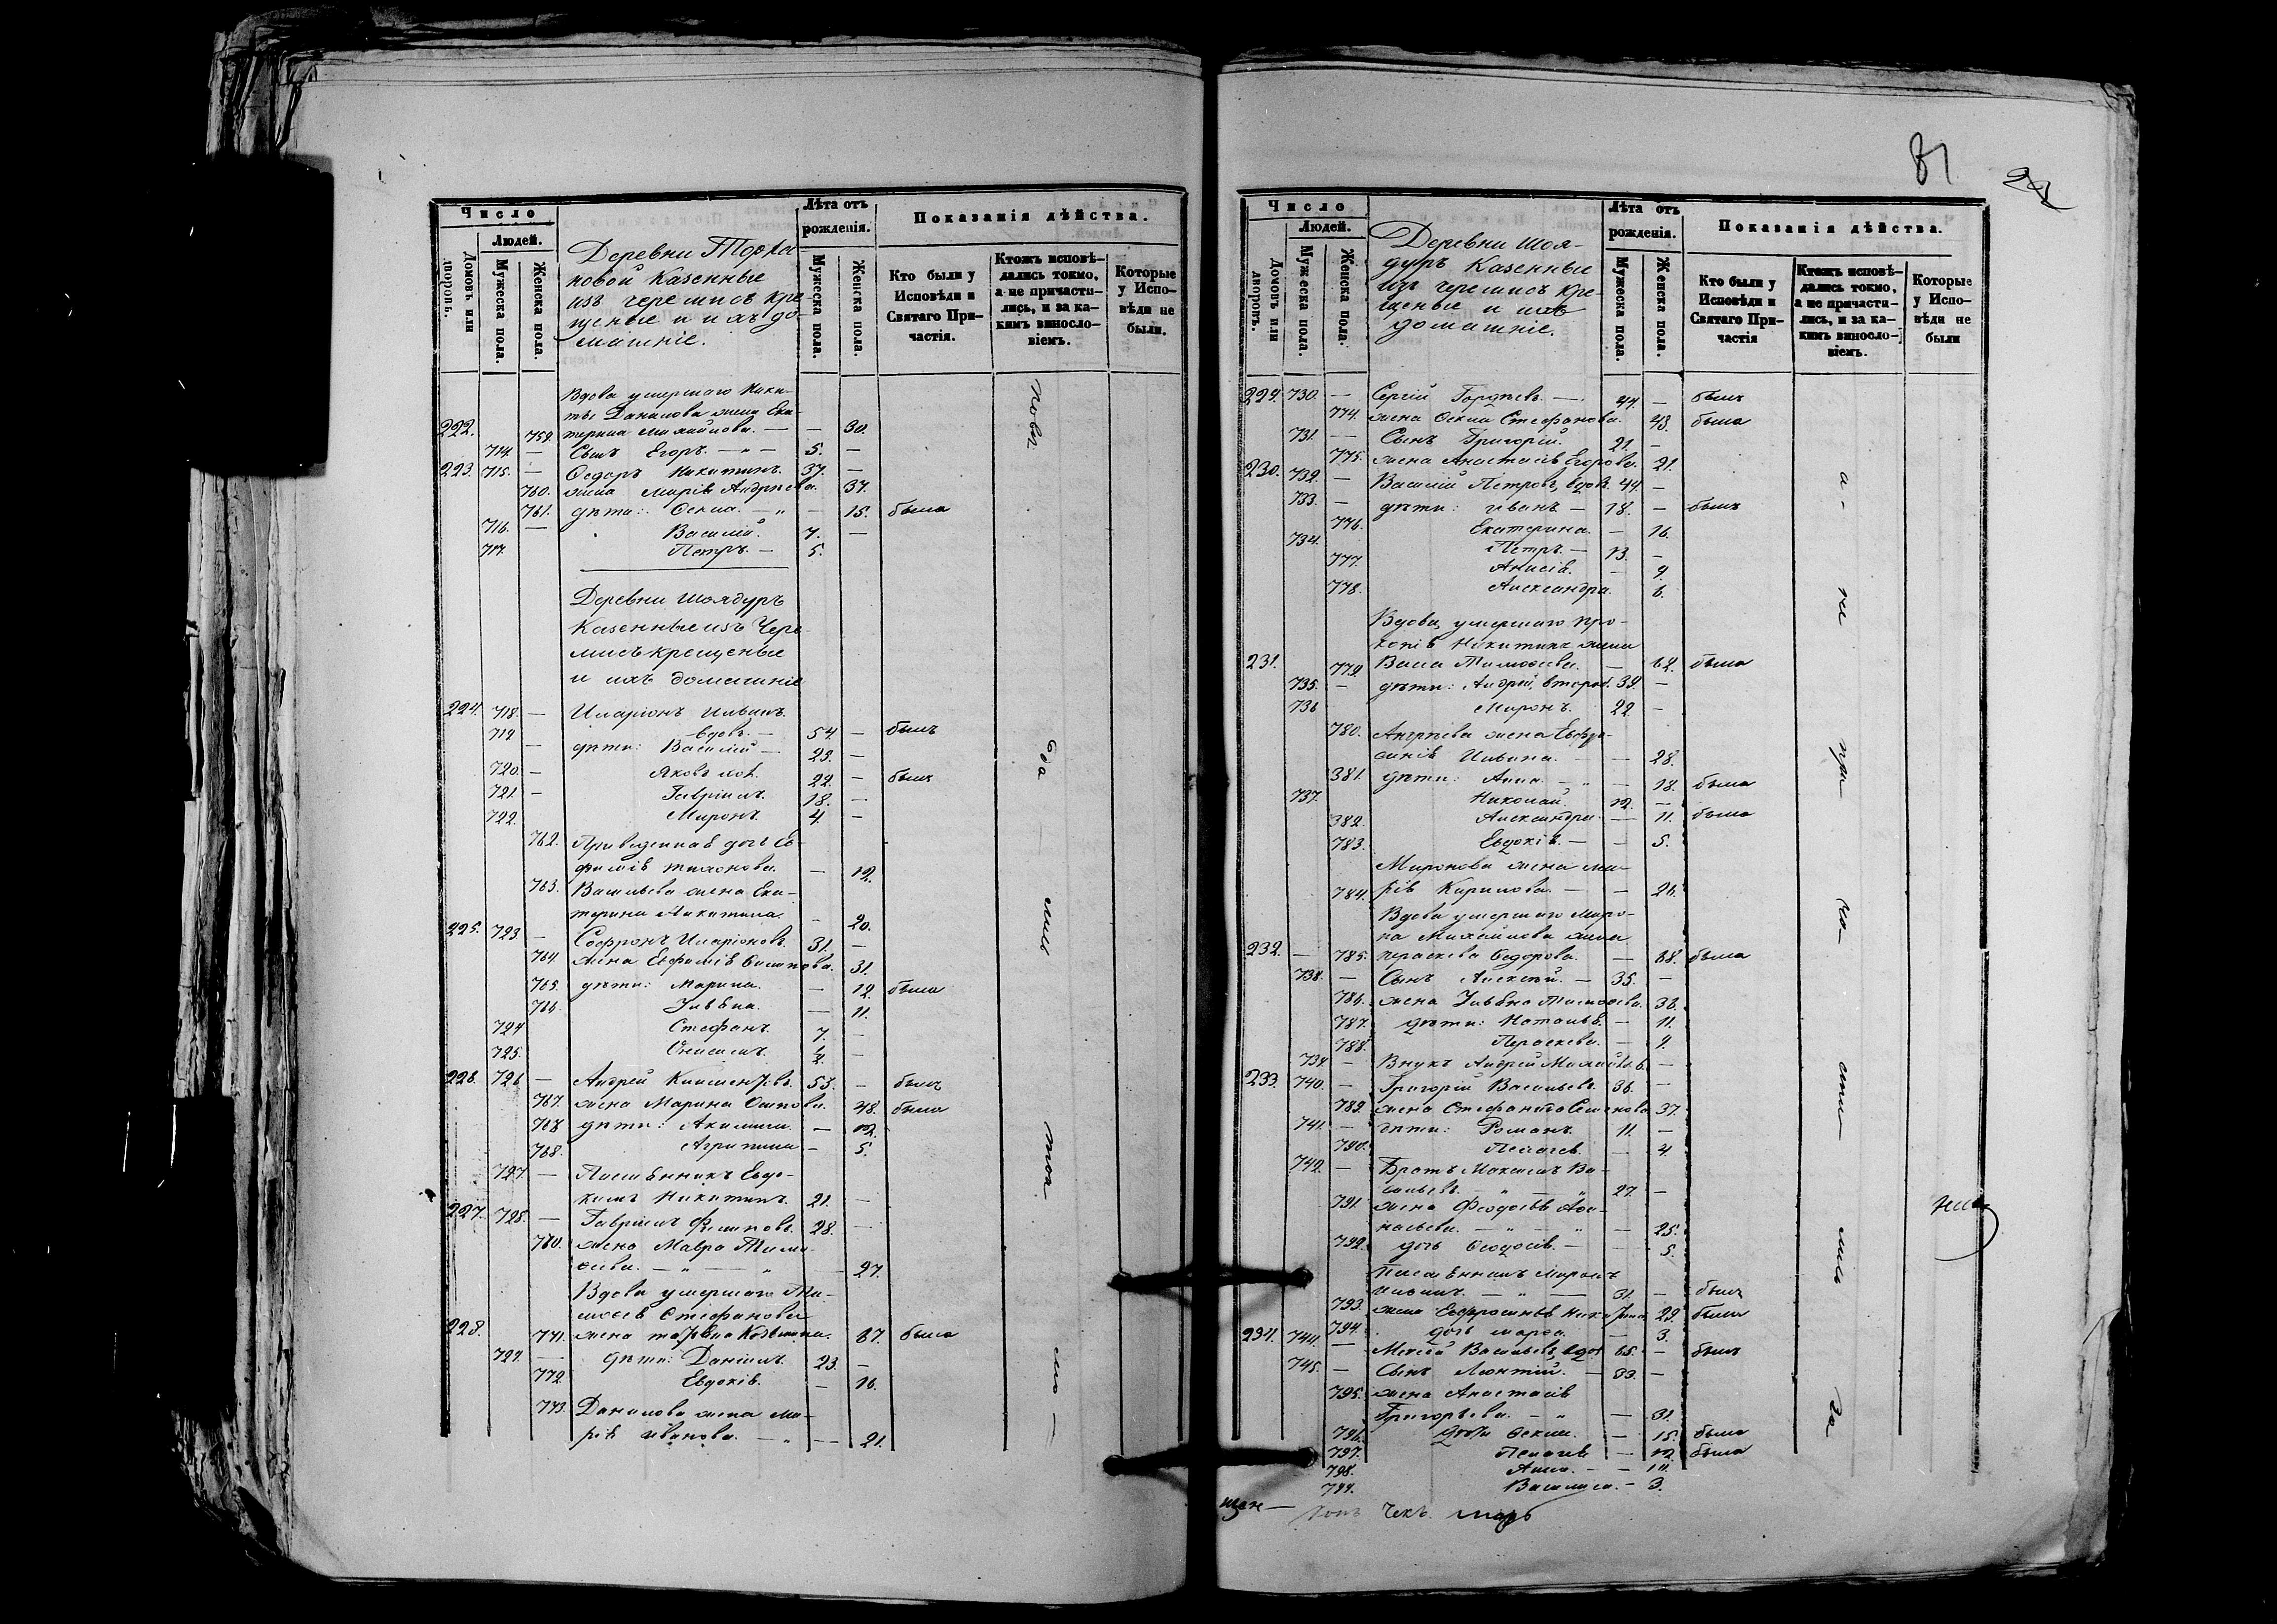 81
Число
Людей.
Домовъ или дворовъ.
Мужеска пола.
Женска пола.
Деревни Торка-
новой Казенные
изъ черемисъ кре-
щеные и ихъ до-
машніе.
Лѣта отъ рожденія.
Мужеска пола.
Женска пола.
Показанія дѣйства.
Кто были у Исповѣди и Святаго При-частія.
Ктожъ исповѣ-дались токмо, а не причасти-лись, и за ка-кимъ винослo-віемъ.
Которые у Испо-вѣди не были.
Вдова умершаго Ники-
ты Данилова жена Ека-
222. 759. терина Михайлова. — — 30.
714. — Сынъ Егоръ. — 5. —
223. 715. — Ѳедоръ Никитинъ. 37. —
760. жена Марія Андреева. 37.
761. дѣти: Ѳекла. — 15. была
716. — Василій. 7. —
717. Петръ. — 5.
Деревни Шоядуръ
Казенные изъ Чере-
мисъ крещеные
и ихъ домашніе
224. 718. — Иларіонъ Ильинъ.
вдовъ. — 54. — былъ
719. — дѣти: Василій — 23. —
720. — Яковъ хол. 22. — былъ
721. — Гавріилъ. 18. —
722. Миронъ. 4. —
762. Приведенная дочь Ев-
фимія Тихонова. — 12.
763. Васильева жена Ека-
терина Никитина. — 20.
225. 723. — Софронъ Иларіоновъ. 31. —
764. жена Евфимія Филипова. 31.
765. дѣти: Марина. — 12. была
766. Ульяна. — 11.
724. Стефанъ. 7. —
725. Онисимъ. ½. —
226. 726. — Андрей Климентьевъ. 53. — былъ
767. жена Марина Осипова. 48. была
768. дѣти: Акилина. — 12.
768. Агрипина — 5.
727. — Племянникъ Евдо-
кимъ Никитинъ. 21. —
227. 728. — Гавріилъ Филиповъ. 28. —
760. жена Мавра Тимо-
ѳеева. — 27.
Вдова умершаго Ти-
моѳея Стефанова
228. 771. жена Татьяна Козьмина. 67. была
729. — дѣти: Даніилъ. 23. —
772. Евдокія. — 16.
773. Данилова жена Ма-
рія Иванова. — — 21.
Число
Людей.
Домовъ или дворовъ.
Мужеска пола.
Женска пола.
Деревни Шоя-
дуръ Казенные
изъ черемисъ кре-
щеные и ихъ
домашніе.
Лѣта отъ рожденія.
Мужеска пола.
Женска пола.
Показанія дѣйства.
Кто были у Исповѣди и Святаго При-частія
Ктожъ исповѣ-дались токмо, а не причасти-лись, и за ка-кимъ винослo-віемъ.
Которые у Испо-вѣди не были
229. 730. — Сергій Гордѣевъ. — 44. — былъ
774. жена Ѳекла Стефанова. 43. была
731. — Сынъ Григорій. 21. —
775. жена Анастасія Егорова. 21.
230. 732. — Василій Петровъ, вдов. 44. —
733. — дѣти: Иванъ — 18. — былъ
776. Екатерина. — 16.
734. Петръ. — 13. —
777. Анисія. — 9.
778. Александра. 6.
Вдова умершаго Про-
копія Никитина жена
231. 779. Васса Тимоѳеева. — 62. была
735. — дѣти: Андрей, второб. 39. —
736 Миронъ. 22. —
780. Андреева жена Евфро-
синія Ильина. — 28.
381. дѣти: Анна. — 18. была
737. Николай. 12. —
382. Александра. — 11. была
783. Евдокія. — — 5.
Миронова жена Ма-
784. рія Кирилова. — — 26.
Вдова умершаго Миро-
на Михайлова жена
232. — 785. Параскева Ѳедорова. — 68. была
738. — Сынъ Алексѣй. — 35. —
786. жена Ульяна Тимоѳеева. 33.
787. дѣти: Наталья. — 11.
788. Параскева. — 9.
739. — Внукъ Андрей Михайлов. 6. —
233. 740. — Григорій Васильевъ. 36. —
789. жена Стефанида Семенова 37.
741. — дѣти: Романъ. 11. —
790. Пелагея. — 4.
742. — Братъ Максимъ Ва-
сильевъ. — 27. —
791. жена Феодосія Афа-
насьева. — 25.
792. дочь Ѳеодосія. — 5.
Племянникъ Миронъ
Ильинъ. — 31. — былъ
793. жена Евфросинія Никитина 29. была
794. дочь Марѳа. — 3.
234. 744. — Моѵсей Васильевъ, вдов. 65. — былъ
745. — Сынъ Леонтій. — 33. —
795. жена Анастасія
Григорьева. — 31.
796. дѣти Ѳекла. — 15. была
797. Пелагея — 12. была
798. Анна. — — 10.
799. Василиса. — 3.